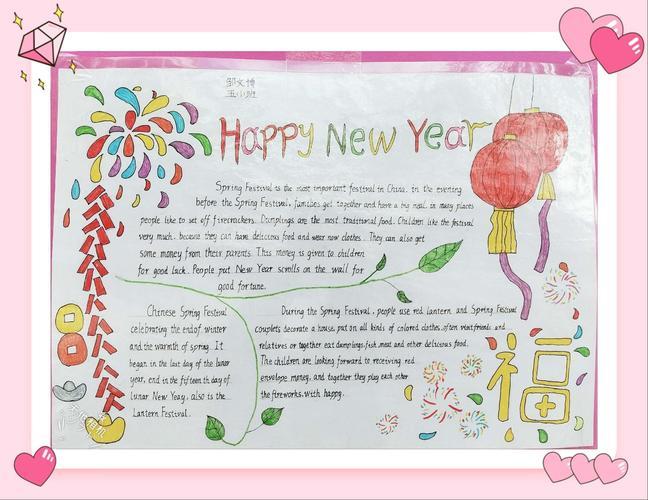 邹文博
五小班
Happy New Year
Spring Festival is the most important festival in China. in the evening
before the Spring Festival, families get together and have a big meal. in many places
people like to set off firecrackers. Dumplings are the most traditional food. Children like the festival
very much, because they can have delicious food and wear new clothes. They can also get
some money from their parents. This money is given to children
for good luck. People put New Year scrolls on the wall for
good fortune.
Chinese Spring Festival
celebrating the end of winter
and the warmth of spring. It
began in the last day of the lunar
year, end in the fifteenth day of
Lunar New Yeay, also is the
Lantern Festival.
During the Spring Festival, people use red lantern and Spring Festival
couplets decorate a house, put on all kinds of colored clothes, often visit friends and
relatives or together eat dumplings, fish, meat and other delicious food.
The children are looking forward to receiving red
envelope money, and together they play each other
the fireworks, with happy.
福